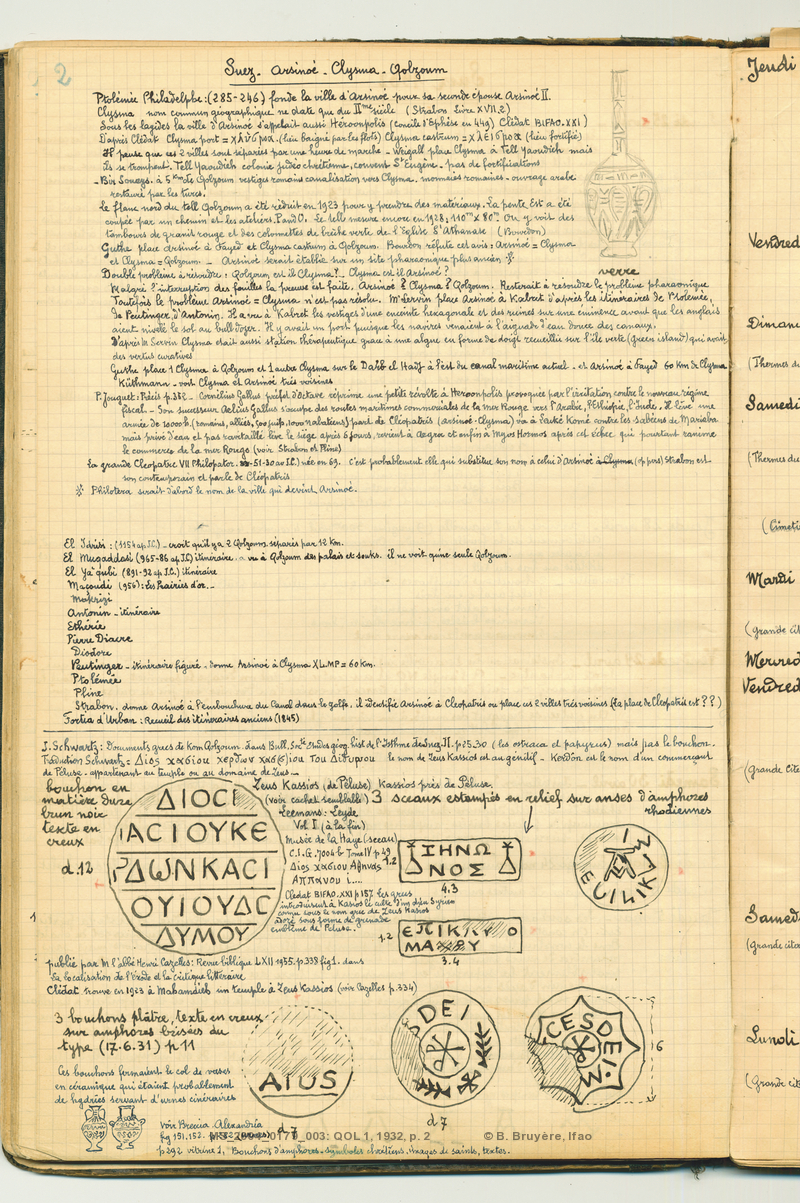 2
Suez - Arsinoé - Clysma - Qolzoum
Ptolémée Philadelphe : (285-246) fonde la ville d'Arsinoé pour sa seconde épouse Arsinoé II.
Clysma nom commun géographique ne date que du IIme siècle (Strabon Livre XVII.2)
Sous les lagides la ville d'Arsinoé s'appelait aussi Héroonpolis (concile d'Ephèse en 449) Clédat BIFAO.XXI)
D'après Clédat Clysma port = (lieu baigné par les flots) Clysma castrum = (lieu fortifié)
Il pense que ces 2 villes sont séparées par une heure de marche - Weigall place Clysma à Tell Yaoudieh mais
ils se trompent. Tell Yaoudieh colonie judéo chrétienne, couvent St Eugène. pas de fortifications
- Bir Soueys. à 5 Km de Qolzoum. vestiges romains canalisation vers Clysma. monnaies romaines - ouvrage arabe
restauré par les turcs.
Le flanc nord du tell Qolzoum a été réduit en 1923 pour y prendre des matériaux. La pente est a été
coupée par un chemin et les ateliers P and O. Le tell mesure encore en 1928, 110m x 80m. On y voit des
tambours de granit rouge et des colonnettes de brèche verte de l'Eglise St Athanase (Bourdon)
Guthe place Arsinoé à Fayed et Clysma castrum à Qolzoum. Bourdon réfute cet avis : Arsinoé = Clysma
et Clysma = Qolzoum. - Arsinoé serait établie sur un site pharaonique plus ancien
verre
Double problème à résoudre : Qolzoum est il Clysma ? - Clysma est il Arsinoé ?
Malgré l'interruption des fouilles la preuve est faite. Arsinoé ? Clysma ? Qolzoum. Resterait à résoudre le problème pharaonique
Toutefois le problème Arsinoé = Clysma n'est pas résolu. Mr Servin place Arsinoé à Kabret d'après les itinéraires de Ptolémée,
de Peutinger, d'Antonin. Il a vu à Kabret les vestiges d'une enceinte hexagonale et des ruines sur une éminence avant que les anglais
aient nivelé le sol au bulldozer. Il y avait un port puisque les navires venaient à l'aiguade d'eau douce des canaux.
D'après M Servin Clysma était aussi station thérapeutique grâce à une algue en forme de doigt recueillie sur l'île verte (green island) qui avait
des vertus curatives
Guthe place 1 Clysma à Qolzoum et 1 autre Clysma sur le Darb el Hadj à l'est du canal maritime actuel. et Arsinoé à Fayed 60 Km de Clysma
Küthmann - voit Clysma et Arsinoé très voisines
P. Jouguet : Précis p. 382 - Cornelius Gallus préfet d'Octave réprime une petite révolte à Heroonpolis provoquée par l'irritation contre le nouveau régime
fiscal - Son successeur Aelius Gallus s'occupe des routes maritimes commerciales de la mer Rouge vers l'Arabie, l'Ethiopie, l'Inde. Il lève une
armée de 10.000 h. (romains, alliés, 500 juifs, 1000 nabatéens) part de Cléopatris (Arsinoé-Clysma) va à Leuké Komé contre les sabéens de Mariaba
mais privé d'eau et pas ravitaillé lève le siège après 6 jours, revient à Aegra et enfin à Myos Hormos après cet échec qui pourtant ranime
le commerce de la mer Rouge (voir Strabon et Pline)
La grande Cléopatre VII Philopator. 51-30 av J.C.) née en 69. C'est probablement elle qui substitue son nom à celui d'Arsinoé à Clysma Strabon est
son contemporain et parle de Cléopatris
Philotera serait d'abord le nom de la ville qui devint Arsinoé.
El Idrisi : (1154 ap. J.C.) - croit qu'il y a 2 Qolzoum séparés par 12 Km.
El Muqaddasi (965-86 ap J.C) itinéraire. a vu à Qolzoum des palais et souks. il ne voit qu'une seule Qolzoum.
El Ya'qubi (891-92 ap J.C.) itinéraire
Maçoudi (956) : Les Prairies d'or. -
Makrizi
Antonin - itinéraire
Ethérie
Pierre Diacre
Diodore
Peutinger - itinéraire figuré - donne Arsinoé à Clysma XL MP = 60 Km.
Ptolémée
Pline
Strabon. donne Arsinoé à l'embouchure du Canal dans le golfe. il identifie Arsinoé à Cleopatris ou place ces 2 villes très voisines (la place de Cleopatris est ??)
Fortia d'Urban : Recueil des itinéraires anciens (1845)
J. Schwartz : Documents grecs de Kom Qolzoum. dans Bull. Soc. Etudes géog. hist de l'Isthme de Suez. II. p 25.30 (les ostraca et papyrus) mais pas le bouchon.
Traduction Schwartz - Διος κασιου κερδων κασιου του Διδυμου le nom de Zeus Kasios est au génitif - Kerdôn est le nom d'un commerçant
de Péluse. appartenant au temple ou au domaine de Zeus -
bouchon en
matière dure
brun noir
texte en
creux
d. 12
ΔΙΟCΙ
ΙΑCΙΟΥΚΕ
ΡΔΩΝΚΑCΙ
ΟΥΙΟΥΔC
ΔΥΜΟΥ
Zeus Kassios (de Péluse) Kassios près de Péluse
(voir cachet semblable)
Leemans : Leyde
Vol. I (à la fin)
Musée de la Haye (sceau)
C.I.G. 7044 b Tome IV p 49
Διος κασιου Αθηνας
Αππανου ι....
Clédat BIFAO. XXI p 157. Les grecs
introduisent à Kasios le culte d'un dieu Syrien
connu sous le nom grec de Zeus Kasios
adoré sous forme de grenade
emblème de Péluse.
3 sceaux estampés en relief sur anses d'amphores
rhodiennes
1.2
ΞΗΝΩ
ΝΟΣ
4.3
1.2
ΕΠΙΚ Ο
ΜΑ ΟΥ
3.4
publié par M l'abbé Henri Cazelles : Revue biblique LXII 1955. p. 338 fig 1. dans
La localisation de l'exode et la critique littéraire
Clédat trouve en 1923 à Mahamdieh un temple à Zeus Kassios (voir Cazelles p. 334)
3 bouchons plâtre, texte en creux
sur amphores brisées du
type (17.6.31) p 11
AIUS
DEI
CESDEIN
6
d 7
d 7
Ces bouchons fermaient le col de vases
en céramique qui étaient probablement
de hydries servant d'urnes cinéraires
voir Breccia Alexandria
fig 151.152.
p 292 vitrine 1, Bouchons d'amphores - symboles chrétiens, images de saints, textes.
003: QOL 1, 1932, p. 2 © B. Bruyère, Ifao
Jeudi
Vendred
Dimanc
(Thermes du
Samedi
(Thermes du
(Cimeti
Mardi
(Grande cit
Mercred
Vendred
(Grande Cite
Samed
(Grande cita
Lundi
(Grande cita